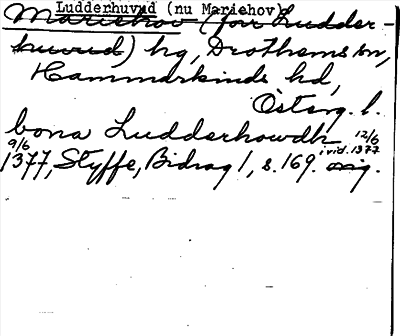 Ludderhuvud (nu Mariehov)
Mariehov (förr Ludder-
huvud) hg, Drothems sn,
Hammarkinds hd,
Österg. l.
bona Ludderhowdh 12/6
9/6 i vid. 1377
1377, Styffe, Bidrag 1, s. 169. orig.